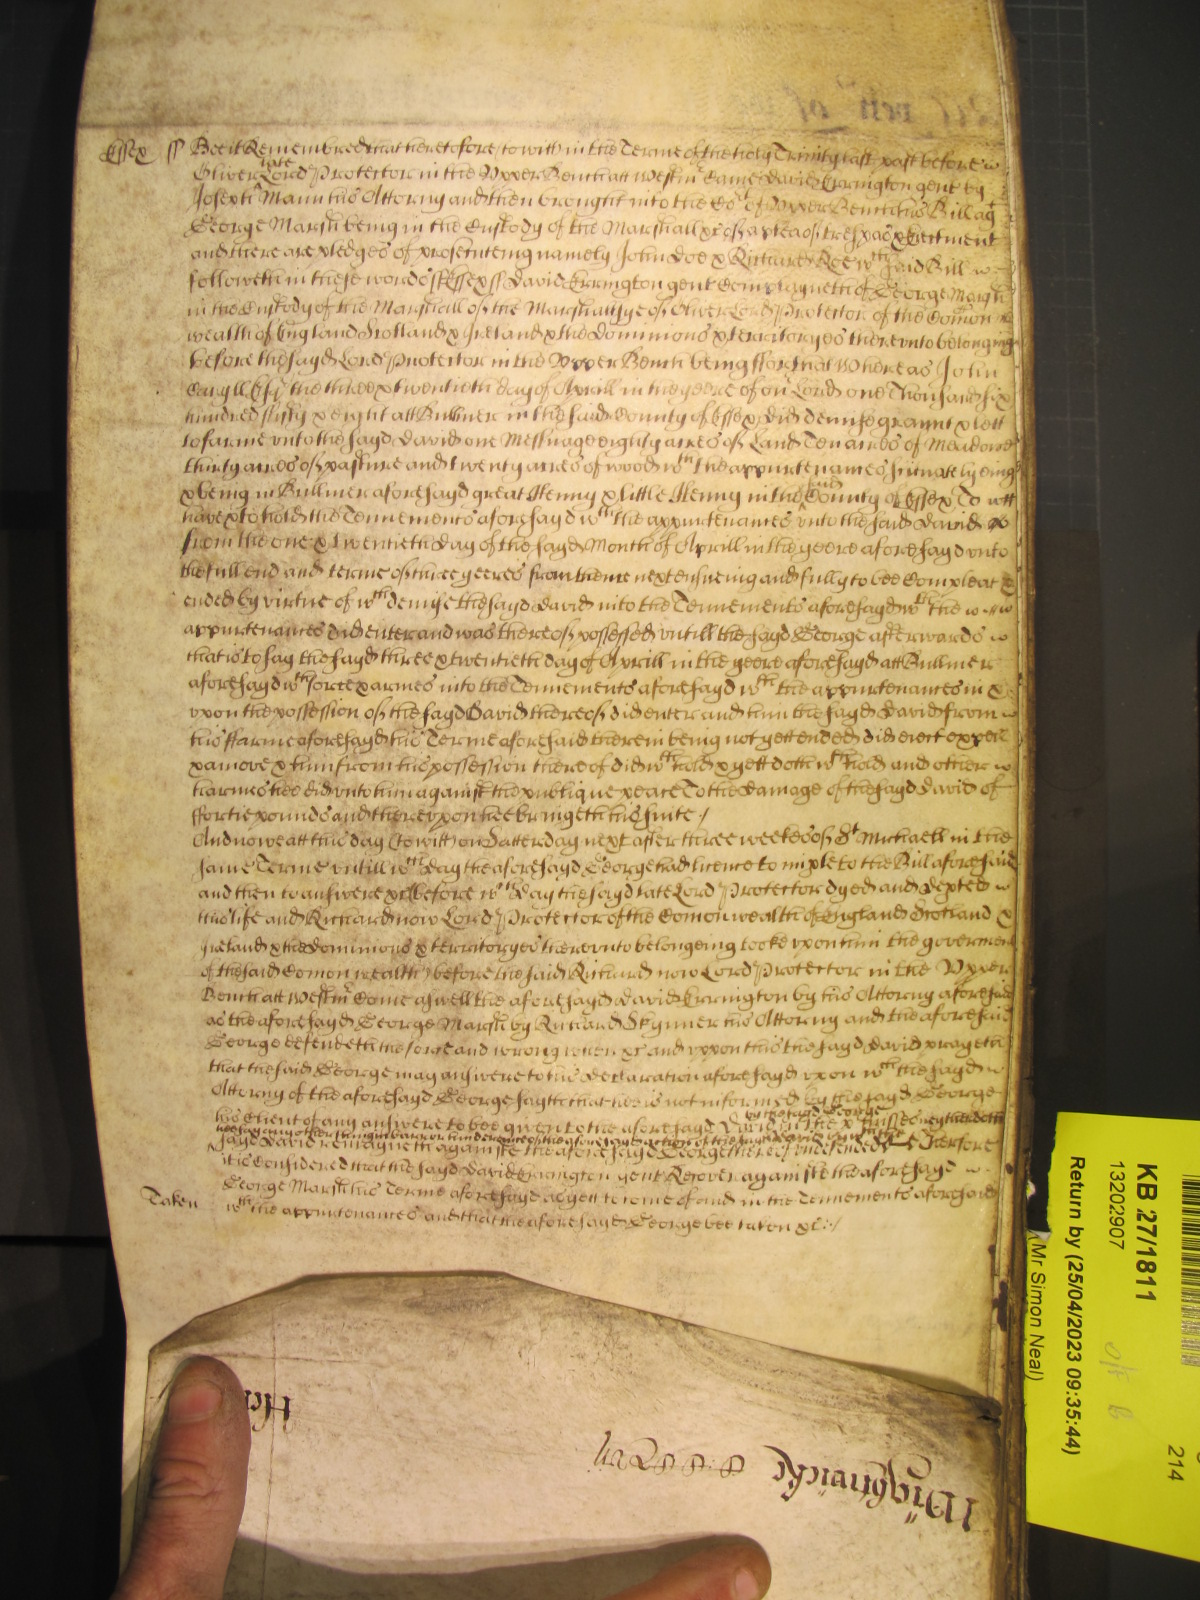 Essex ss Bee it Remembred that heretofore (to witt) in the Terme of the holy Trinity last past before
Oliver late Lord Protector in the Upper Bench att Westmr Came David Errington gent by
Joseph Mann his Attorny and then brought into the Cort of Upper Bench his Bill agt
George Marsh being in the Custody of the Marshall &c of a plea of trespas & Eiectment
and there are pledges of prosecuteing namely John Doe & Richard Roe wch said Bill
followeth in these words ss Essex ss David Errington gent Complayneth of George Marsh
in the Custody of the Marshall of the Marshallsye of Oliver Lord Protector of the Comon
wealth of England Scotland & Ireland & the Dominions & territoryes thereunto belonging
before the sayd Lord Protector in the Upper Bench being ffor that Whereas John
the three & twentieth day of Aprill in the yeere of our Lord one Thousand six
hundred fifty & eight att Bullmer in the said County of Essex did demise graunt & lett
to farme unto the sayd David one Messuage eighty acres of Land Ten acres of Meadow
thirty acres of pasture and twenty acres of wood wth the appurtenances scituate lyeing
& being in Bullmer aforesayd great Henny & little Henny in the said County of Essex To
have & to hold the Tennements aforesayd wth the appurtenances unto the said David
from the one & twentieth day of the sayd Month of Aprill in the yeere aforesayd unto
the full end and terme of three yeeres from thence next ensueing and fully to bee Compleat &
ended by virtue of wch demise the sayd David into the Tennements aforesayd wth the
appurtenances did enter and was thereof possessed untill the sayd George afterwards
that is to say the sayd three & twentieth day of Aprill in the yeere aforesayd att Bullmer
aforesayd wth force & armes into the Tennements aforesayd wth the appurtenances in &
upon the possession of the sayd David thereof did enter and him the sayd David from
his ffarme aforesayd his Terme aforesaid therein being not yett ended did eiect expell
& amove & him from his possession thereof did wthhold & yett doth wthhold and other
harmes hee did unto him against the publique peace To the damage of the sayd David of
ffortie pounds and thereupon hee bringeth his suite /
And nowe att this day (to witt) on Satterday next after three weekes of St Michaell in the
same Terme untill wch day the aforesayd George had licence to imple to the Bill aforesaid
and then to answere &c before wch day the sayd late Lord Protector dyed and depted
this life and Richard now Lord Protector of the Comonwealth of England Scotland &
Ireland & the Dominions & territoryes thereunto belongeing tooke upon him the goverment
of the said Comon wealth before the said Richard now Lord Protector in the Upper
Bench att Westmr Come aswell the aforesayd David Errington by his Attorny aforesaid
as the aforesayd George Marsh by Richard Skynner his Attorny and the aforesaid
George defendeth the force and wrong when &c and uppon this the sayd David prayeth
that the said George may answere to the declaration aforesayd upon wch the sayd
Attorny of the aforesayd George sayth that hee is not informed by the sayd George
his Client of any answere to bee given to the aforesayd David in the &misses by the sayd George neyther doth
hee say any other thing in barr or hinderance of the aforesayd action of the sayd David
sayd David remayneth againste the aforesayd George thereof undefended Therefore
it is Considered that the sayd David Errington gent Recover againste the aforesayd
George Marsh his Terme aforesayd as yett to come of and in the Tennements aforesaid
Taken wth the appurtenances and that the aforesayd George bee taken &c /
KB 27/1811
13202907
Return by (25/04/2023 09:35:44)
(Mr Simon Neal)
214